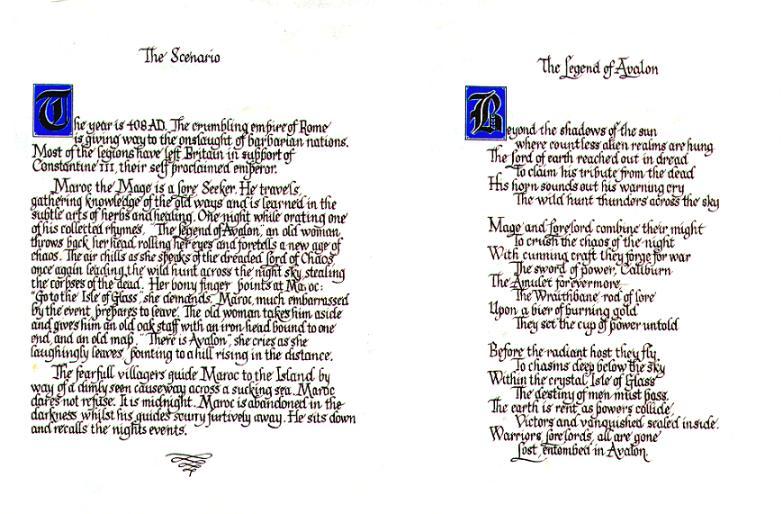 The Scenario
The year is 408 AD. The crumbling empire of Rome
is giving way to the onslaught of barbarian nations.
Most of the legions have left Britain in support of
Constantine III, their self proclaimed emperor.
Maroc the Mage is a Lore Seeker. He travels,
gathering knowledge of the old ways and is learned in the
subtle arts of herbs and healing. One night while orating one
of his collected rhymes, "The Legend of Avalon", an old woman
throws back her head rolling her eyes and foretells a new age of
chaos. The air chills as she speaks of the dreaded Lord of Chaos,
once again leading the wild hunt across the night sky, stealing
the corpses of the dead. Her bony finger points at Maroc:
"Go to the Isle of Glass", she demands. Maroc, much embarrassed
by the event, prepares to leave. The old woman takes him aside
and gives him an old oak staff with an iron head bound to one
end, and an old map. "There is Avalon", she cries as she
laughingly leaves, pointing to a hill rising in the distance.
The fearfull villagers guide Maroc to the Island by
way of a dimly seen causeway across a sucking sea. Maroc
dares not refuse. It is midnight. Maroc is abandoned in the
darkness whilst his guides scurry furtively away. He sits down
and recalls the nights events.
The Legend of Avalon
Beyond the shadows of the sun
where countless alien realms are hung
The Lord of earth reached out in dread
To claim his tribute from the dead
His horn sounds out his warning cry
The wild hunt thunders across the sky
Mage and Lorelord combine their might
To crush the chaos of the night
With cunning craft they forge for war
The sword of power, Caliburn
The Amulet forevermore,
The Wraithbane rod of lore
Upon a bier of burning gold
They set the cup of power untold
Before the radiant host they fly,
To chasms deep below the sky
Within the crystal Isle of Glass
The destiny of men must pass.
The earth is rent as powers collide,
Victors and vanquished sealed inside.
Warriors, Lorelords, all are gone
Lost, entombed in Avalon.